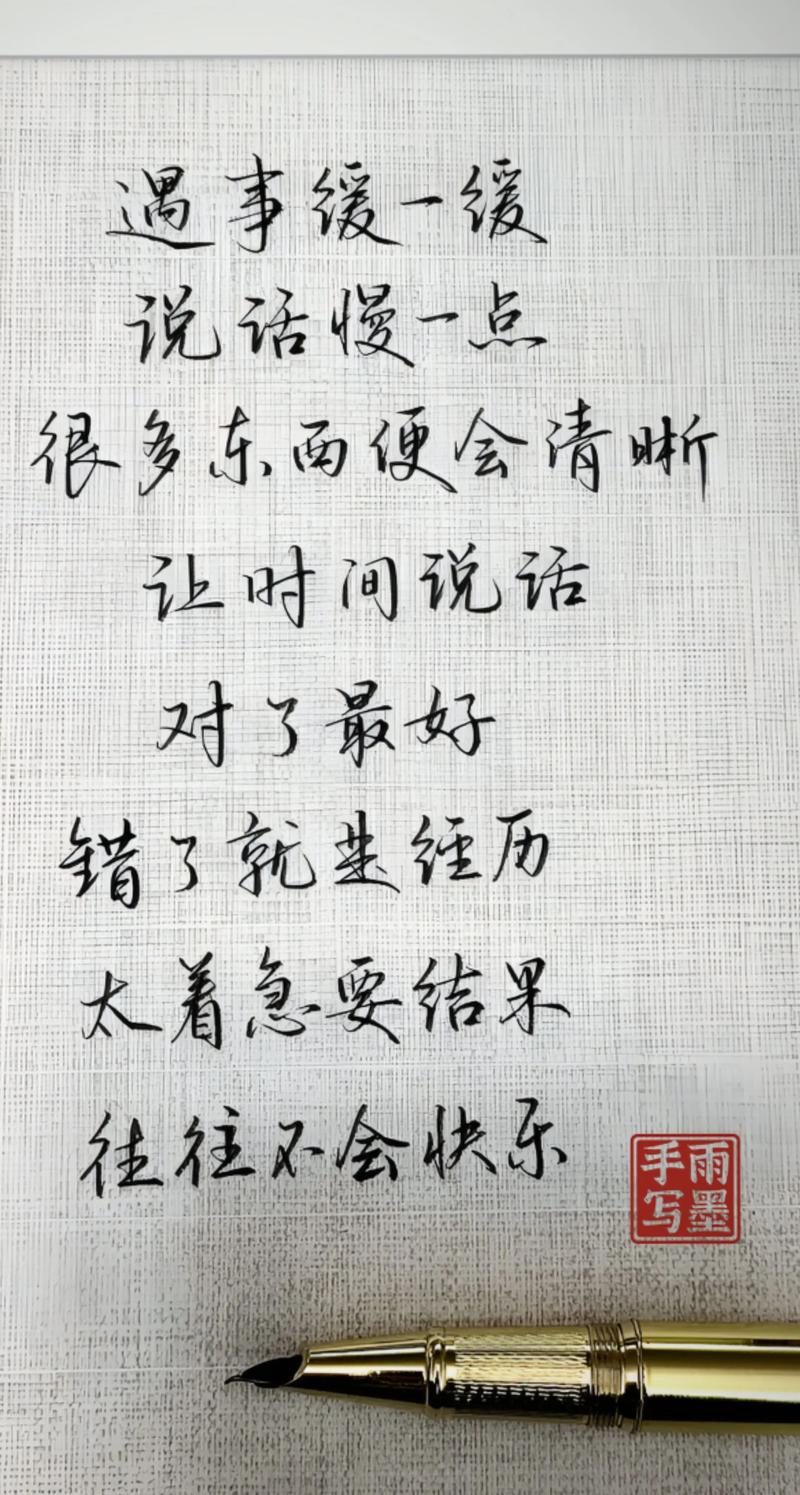 遇事缓一缓
说话慢一点
很多东西便会清晰
让时间说话
对了最好
错了就是经历
太着急要结果
往往不会快乐
雨墨手写